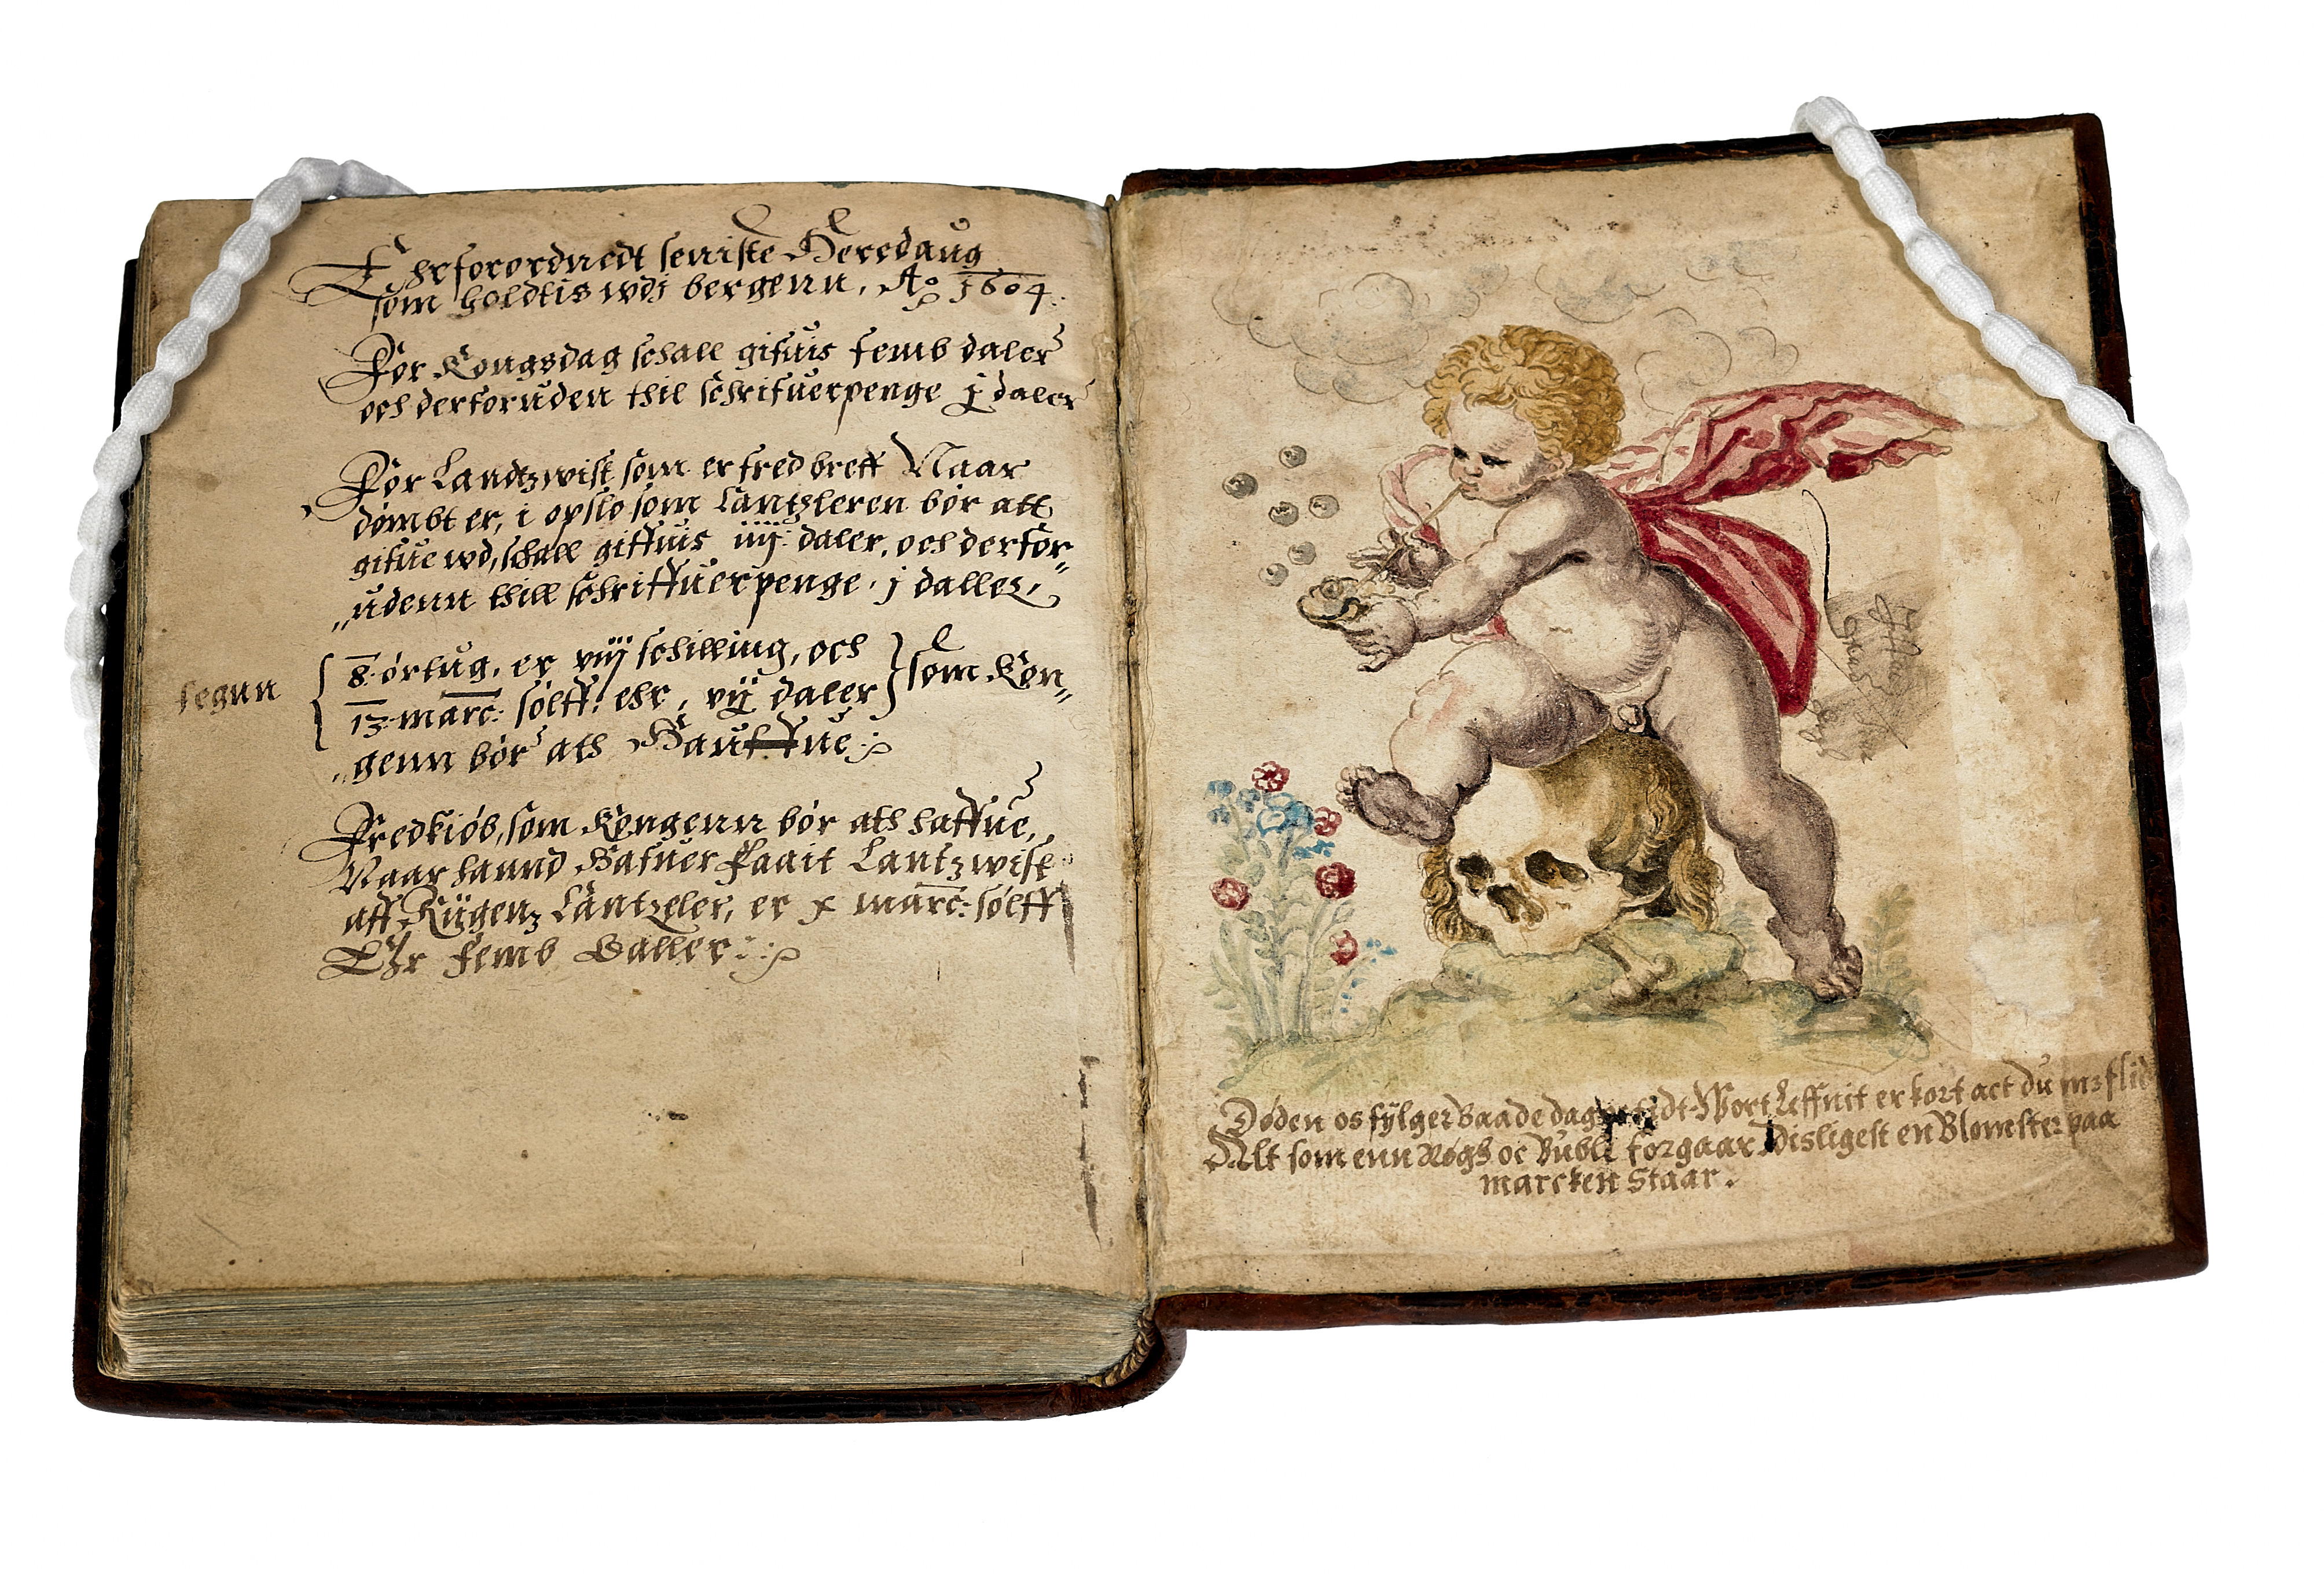 Ehr forordnedt seniste Heredaug
som holdtis wdj bergenn, Ao 1604.
For Kongsdag schall gifuis femb daler
och derforuden thil schrifuerpenge j daler
For Landtzwist som er fred breff Naar
dømbt er, i opslo som Cantzleren bør att
gifue wd, schall giffuis iiij daler, och derfor„
„udenn thill schriffuerpenge, j daller,
segnn
8 ørtug, er viij schilling, och
13 marc: sølff: ehr, vij daler som Kon„
„genn bør ath Hauffue
Fredkiøb, som Kongenn bør ath haffue,
Naar hannd Hafuer faait Lantzwist
aff Rigenz Cantzeler, er x marc: sølff
Ehr femb Daller
Døden os fylger Baade dag tidt Wort Leffnit er kort act du m3 flid
Alt som enn Røgh oc Buble forgaar Disligest en Blomster paa
marcken Staar.